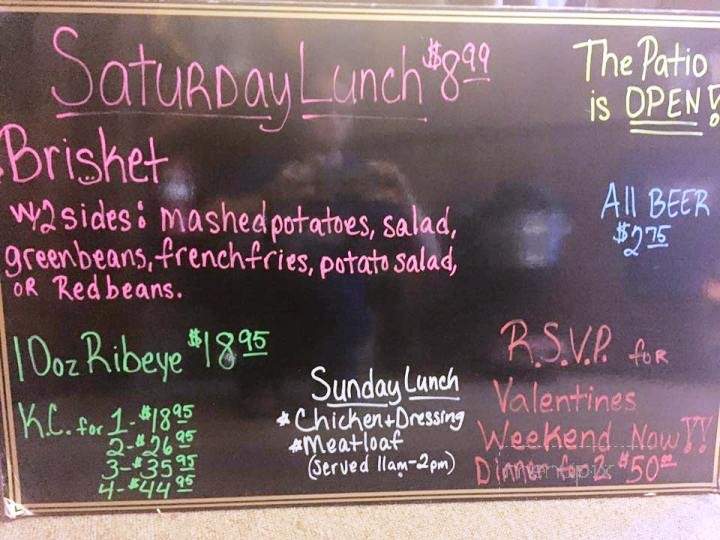 Saturday Lunch $8.99
Brisket
w/2 sides: mashed potatoes, salad,
green beans, french fries, potato salad,
OR Red beans.
10oz Ribeye $18.95
K.C. for 1-$18.95
2-$26.95
3-$35.95
4-$44.95
Sunday Lunch
* Chicken + Dressing
* Meatloaf
(served 11am-2pm)
The Patio
is OPEN!
All BEER
$2.75
R.S.V.P. for
Valentines
Weekend Now!!
Dinner for 2 $50.00